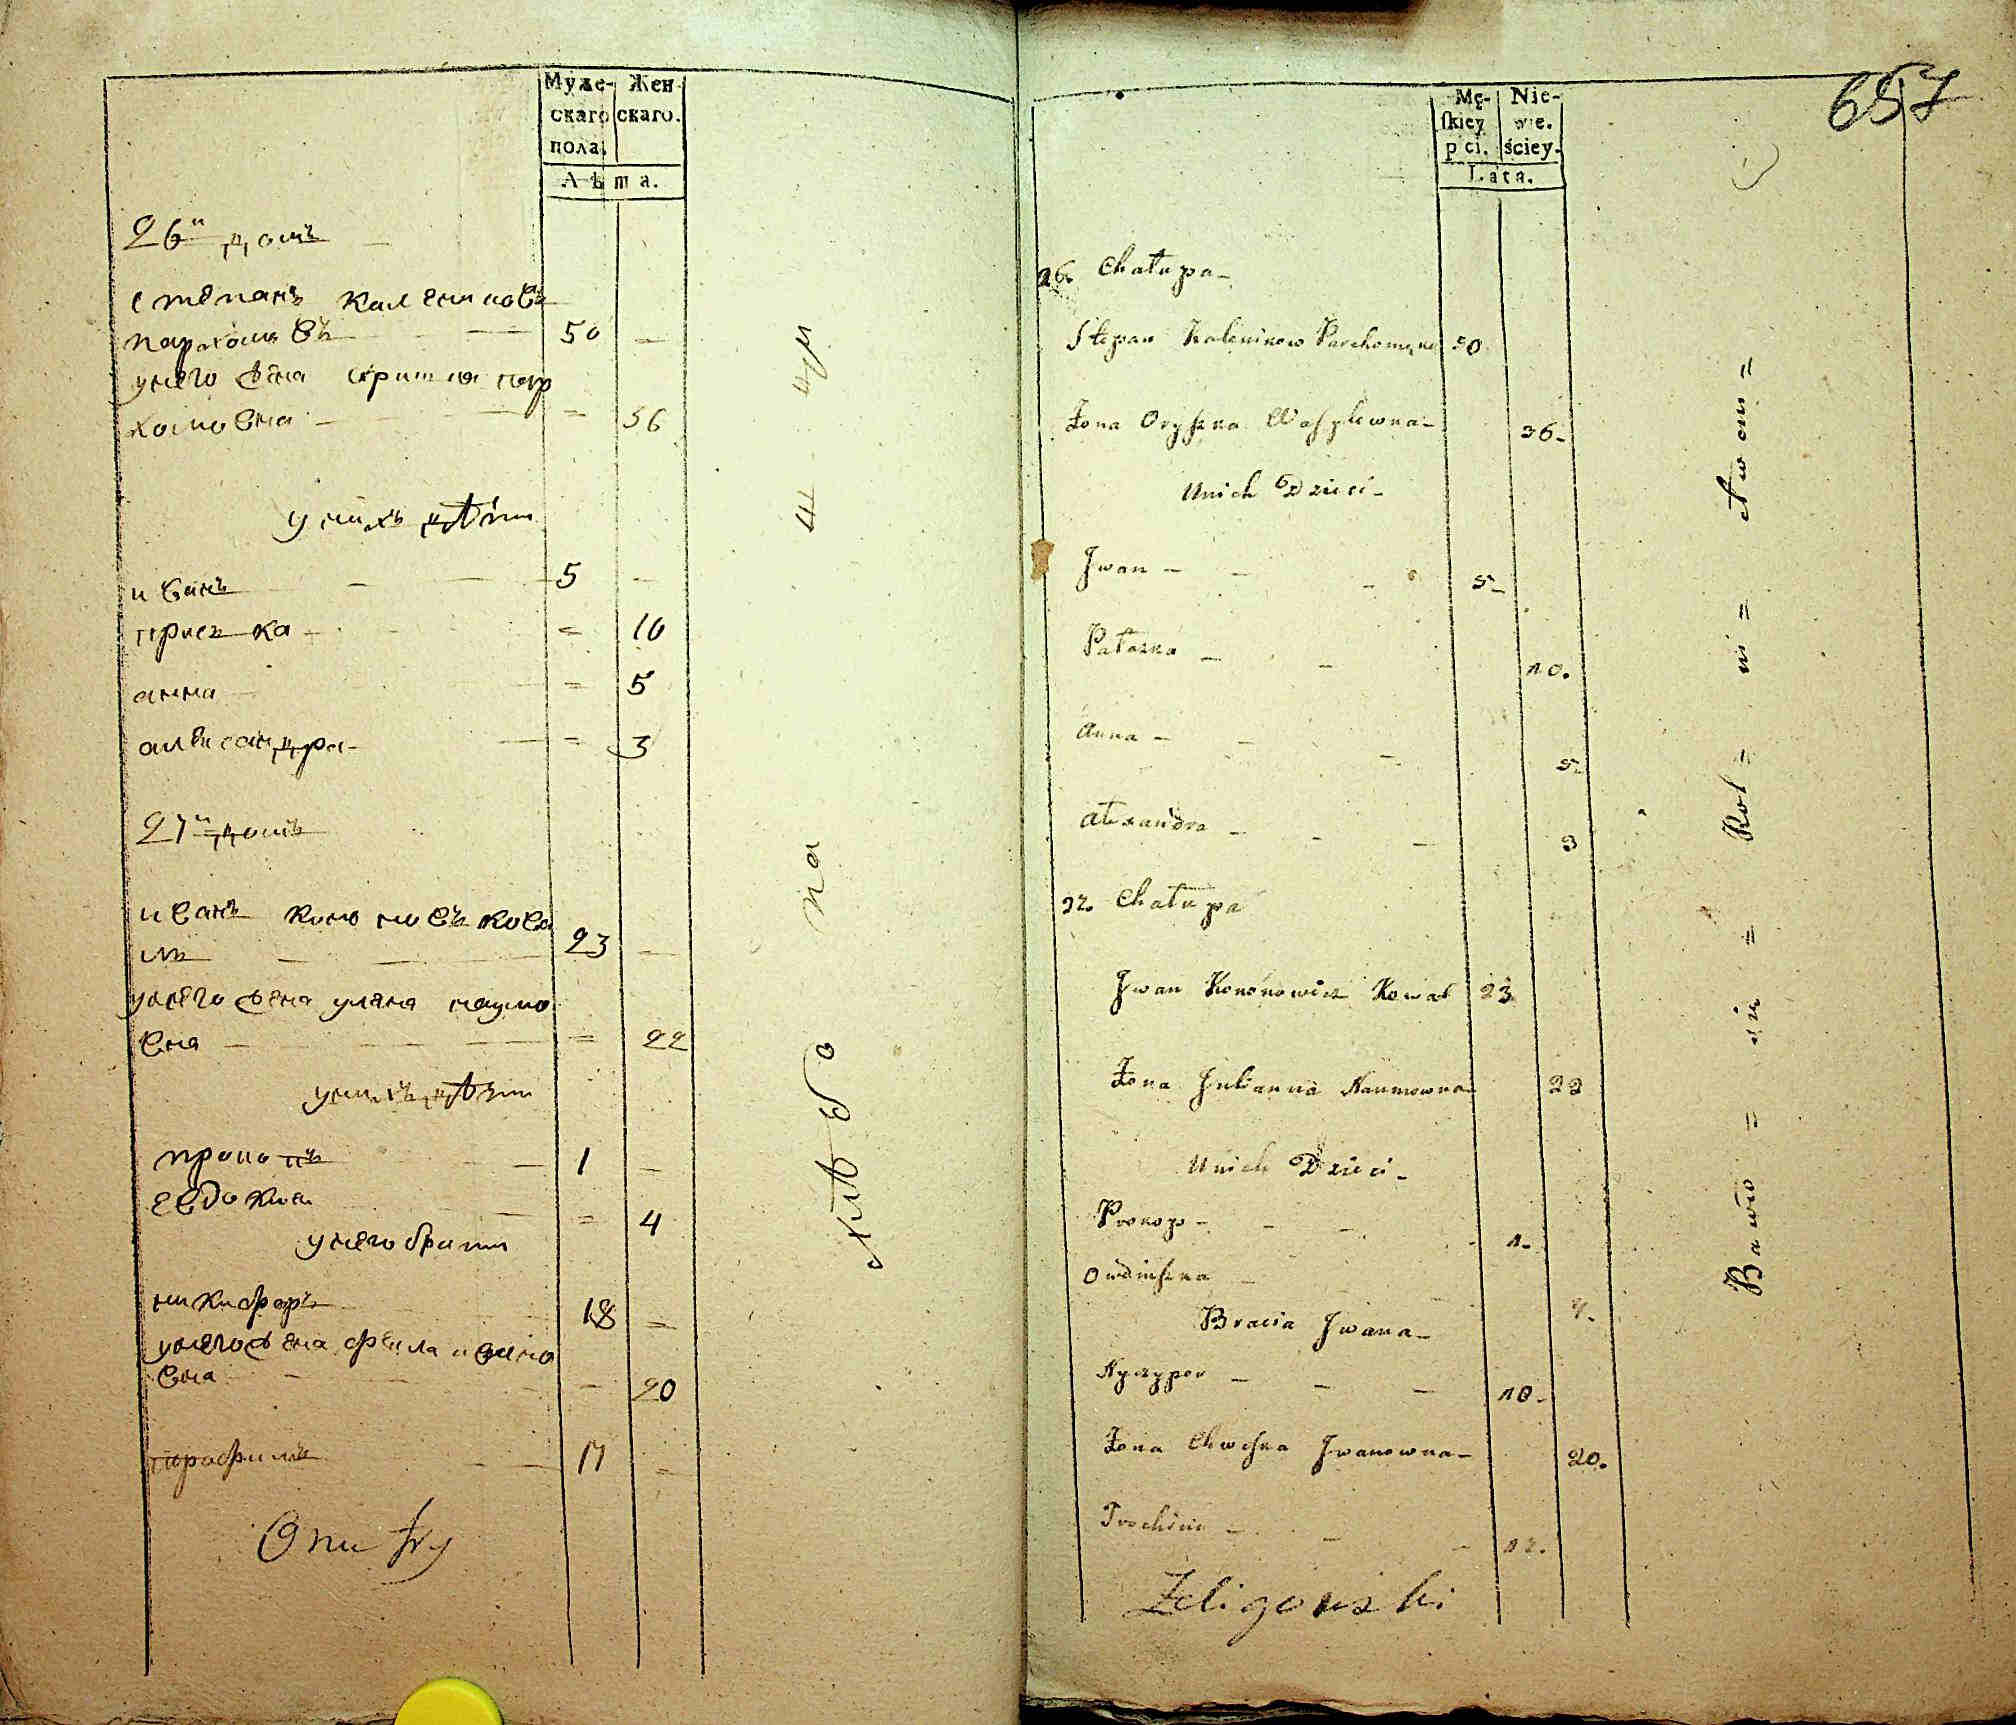 Муже-
скаго
пола.
Жен-
скаго.
Лѣта.
26й домъ
степанъ калениковъ
пархомовъ 50 –
унего жена оришка пар
хомовна – = 36
унихъ дѣти
иванъ – 5 –
приська – = 10
анна – = 5
александра – = 3
27й домъ
иванъ кононовъ кова
ль – 23 –
унего жена уляна наумо
вна – = 22
унихъ дѣти
прокопъ – 1 –
евдокия = 4
унего брати
никифоръ 18 =
унего жена фекла ивано
вна – – 20
трофимъ – 17 =
хлѣбопа
657
Mę-
skiey
pci.
Nie-
wie-
ściey.
Lata.
26. Chałupa –
Stepan Kalenikow Parchomenko 50
Żona Oryszka Wasylewna – 36 –
Unich Dzieci –
Jwan – – – 5 –
Paraska – – 10.
Anna – – – 5 –
Alexandra – – – 3
27. Chałupa
Jwan Kononowicz Kowal 23
Żona Julianna Naumowna 22
Unich Dzieci –
Prokop – – – 1 –
Owdiuszka – 4.
Bracia Jwana –
Nyczypor – – – 18 –
Żona Chweska Jwanowna – 20.
Trochim – – – 17.
Żeligowski